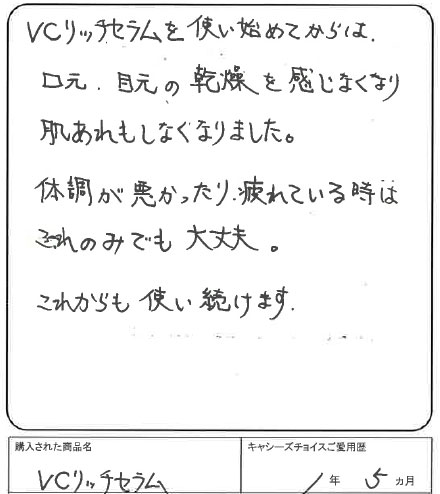 VCリッチセラムを使い始めてからは、
口元、目元の乾燥を感じなくなり
肌あれもしなくなりました。
体調が悪かったり、疲れている時は
これのみでも大丈夫。
これからも使い続けます。
購入された商品名
VCリッチセラム
キャシーズチョイスご愛用歴
1年5カ月